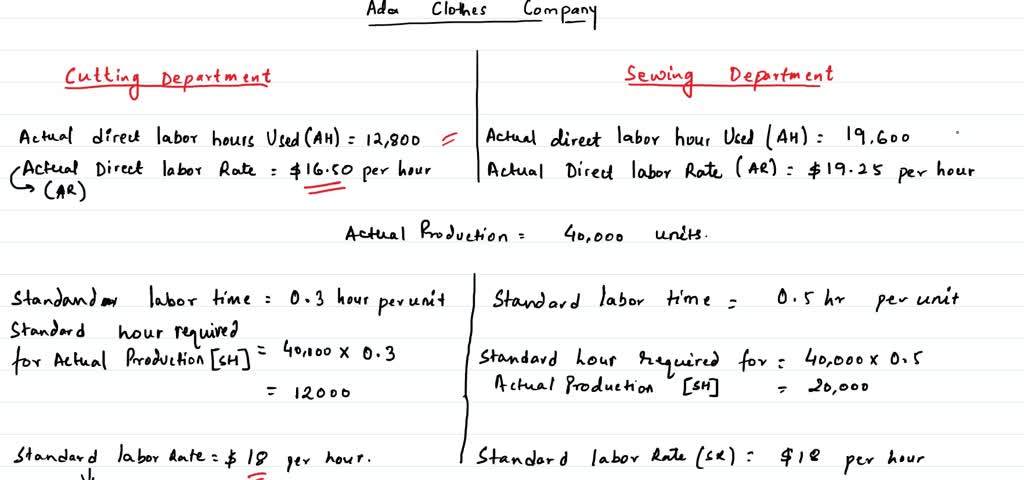 Ada Clothes Company
Cutting Department
Actual direct labor hours Used (AH) = 12,800
Actual Direct labor Rate = $16.50 per hour
(AR)
Sewing Department
Actual direct labor hour Used (AH) = 19.600
Actual Direct labor Rate (AR) = $19.25 per hour
Actual Production = 40,000 units.
Standard labor time = 0.3 hour per unit
Standard hour required
for Actual Production [SH] = 40,000 x 0.3
= 12000
Standard labor Rate = $ 18 per hour.
Standard labor time = 0.5 hr per unit
Standard hour required for = 40,000 x 0.5
Actual Production [SH] = 20,000
Standard labor Rate (SR) = $18 per hour